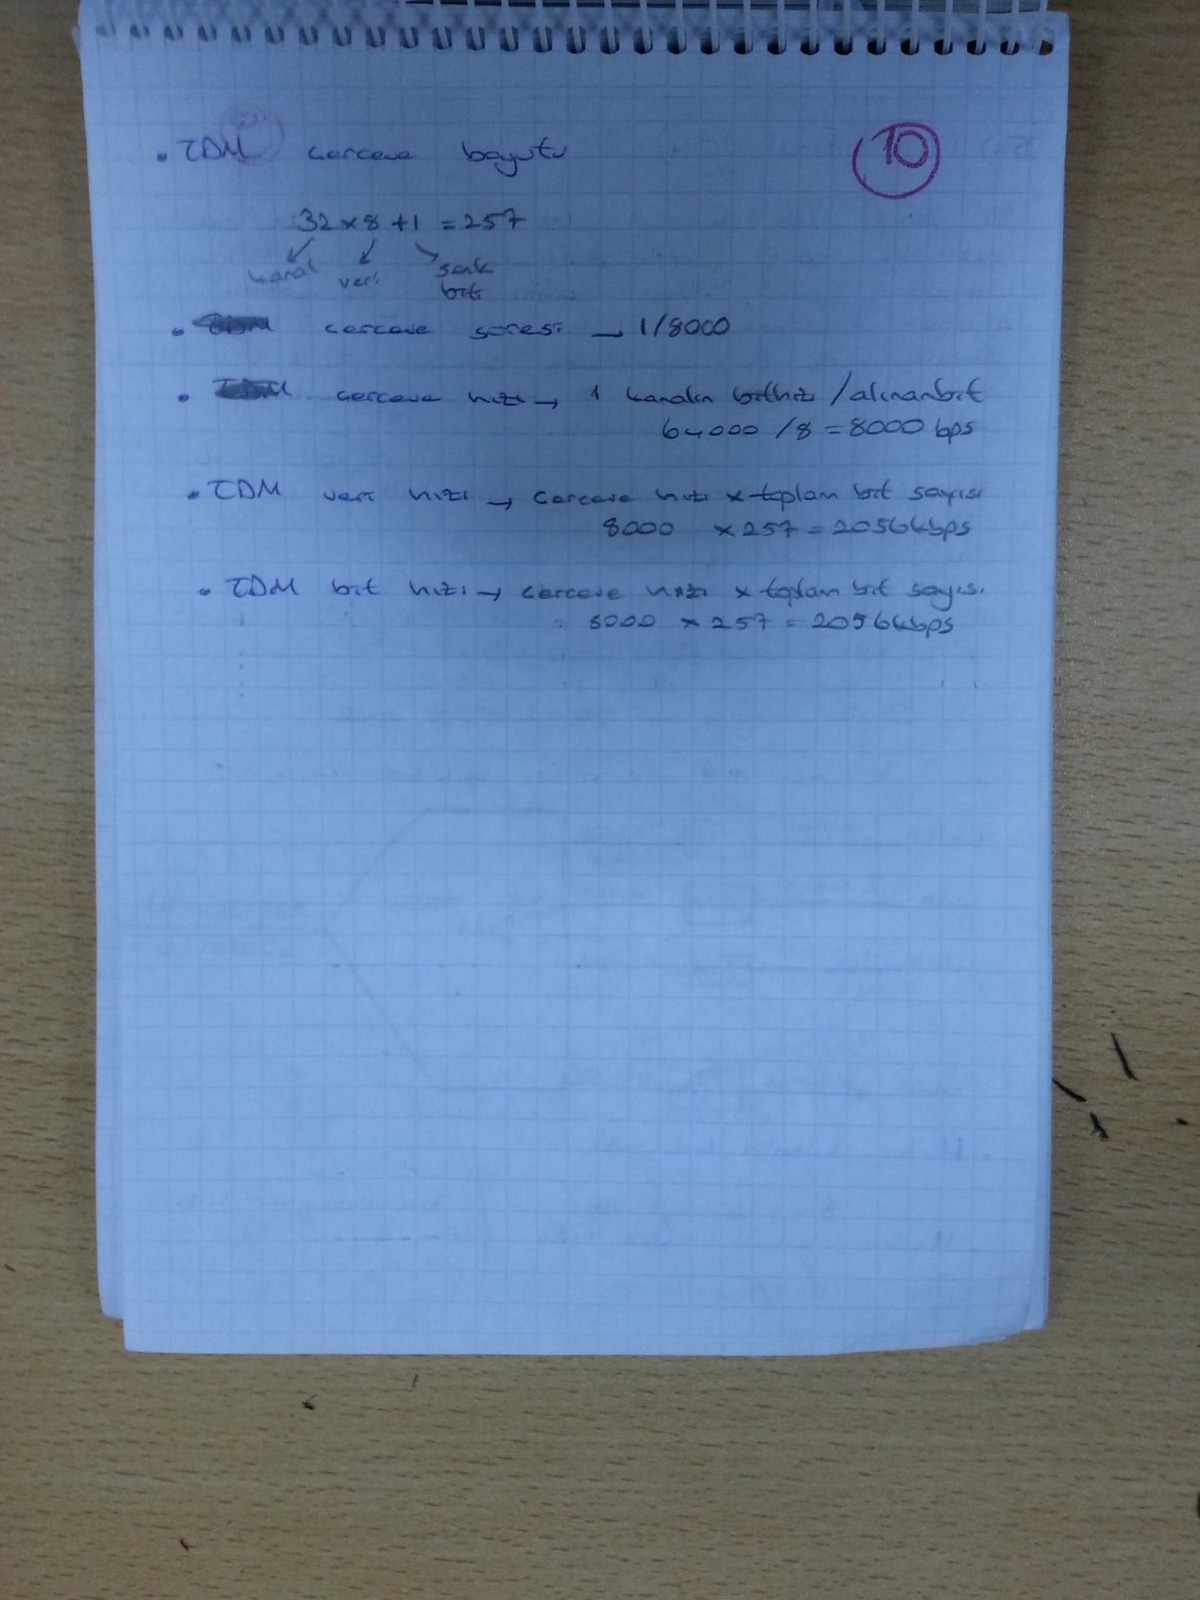 10
• TDM cerceve boyutu
32 x 8 + 1 = 257
kanal veri senk
biti
• cerceve süresi → 1/8000
• cerceve hızı → 1 kanalın bithızı / alınanbit
64000 / 8 = 8000 bps
• TDM veri hızı → cerceve hızı x toplam bit sayısı
8000 x 257 = 2056kbps
• TDM bit hızı → cerceve hızı x toplam bit sayısı
8000 x 257 = 2056kbps